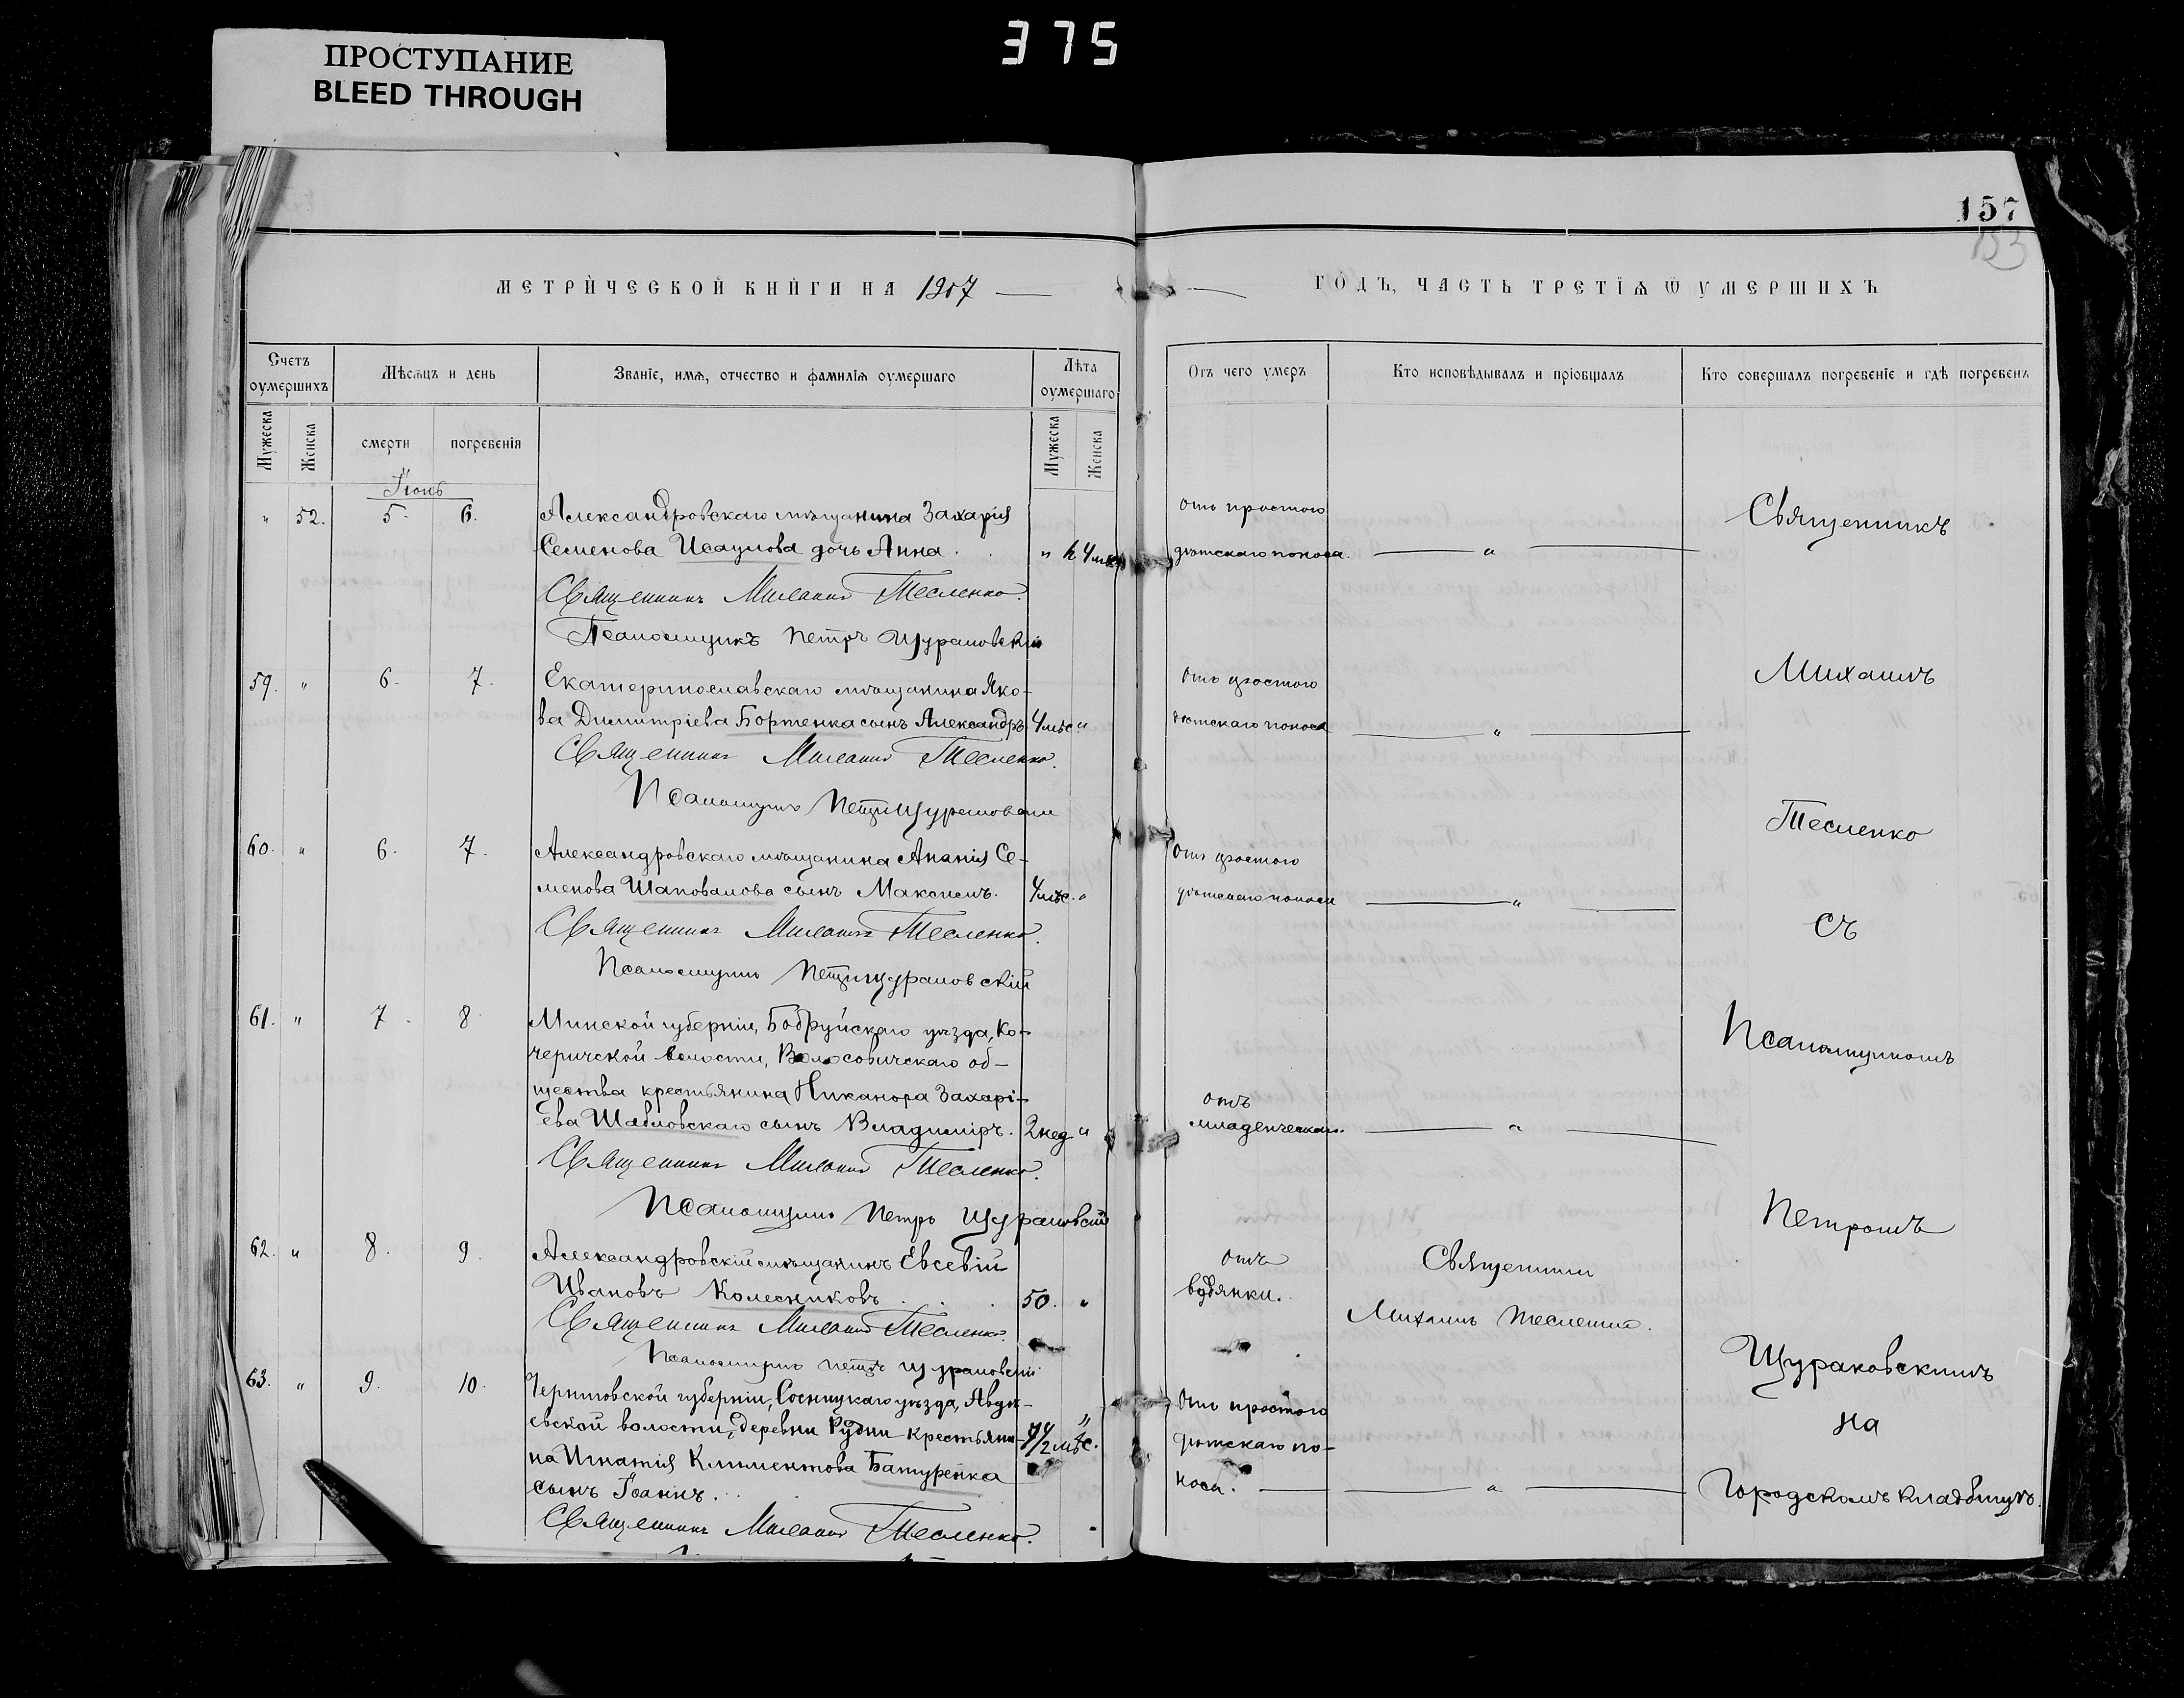 ПРОСТУПАНИЕ
BLEED THROUGH
375
157
153
МЕТРИЧЕСКОЙ КНИГИ НА 1907
ГОДЪ, ЧАСТЬ ТРЕТІѦ Ѿ УМЕРШИХЪ
Счетъ оумершихъ
Мѣсѧцъ и день
Званіе, имѧ, отчество и фамиліѧ оумершаго
Лѣта оумершаго
Отъ чего умеръ
Кто исповѣдывалъ и пріобщалъ
Кто совершалъ погребеніе и гдѣ погребенъ
Мужеска
Женска
смерти
погребенія
Мужеска
Женска
Іюнь
" 52. 5. 6. Александровскаго мѣщанина Захарія отъ простого
Семенова Исаулова дочь Анна. " 4 мѣс. дѣтскаго поноса. "
Священникъ Михаилъ Тесленко.
Псаломщикъ Петръ Щураковскій
59. " 6. 7. Екатеринославскаго мѣщанина Яко- отъ простого
ва Димитріева Бортенка сынъ Александръ. 4 мѣс. " дѣтскаго поноса "
Священникъ Михаилъ Тесленко.
Псаломщикъ Петръ Щураковскій
60. " 6. 7. Александровскаго мѣщанина Ананія Се- отъ простого
менова Шаповалова сынъ Максимъ. 4 мѣс. " дѣтскаго поноса "
Священникъ Михаилъ Тесленко.
Псаломщикъ Петръ Щураковскій
61. " 7. 8. Минской губерніи, Бобруйскаго уѣзда, Ко-
черичской волости, Волосовичскаго об-
щества крестьянина Никанора Захарі- отъ
ева Шабловскаго сынъ Владиміръ. 2 нед. " младенческой. "
Священникъ Михаилъ Тесленко.
Псаломщикъ Петръ Щураковскій
62. " 8. 9. Александровскій мѣщанинъ Евсевій отъ Священникъ
Ивановъ Колесниковъ 50. " водянки. Михаилъ Тесленко.
Священникъ Михаилъ Тесленко.
Псаломщикъ Петръ Щураковскій
63. " 9. 10. Черниговской губерніи, Сосницкаго уѣзда, Авдѣ- отъ простого
евской волости, деревни Рудни крестьяни- 1/2 мѣс. " дѣтскаго по-
на Игнатія Климентова Батуренка носа. "
сынъ Іоаннъ.
Священникъ Михаилъ Тесленко.
Священникъ
Михаилъ
Тесленко
съ
Псаломщикомъ
Петромъ
Щураковскимъ
на
Городскомъ кладбищѣ.